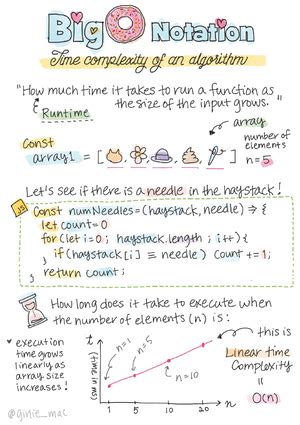 Big O Notation
Time complexity of an algorithm
"How much time it takes to run a function as
the size of the input grows."
Runtime
array
number of
elements
n=5
Const
array1 = [ , , , , ]
Let's see if there is a needle in the haystack!
JS
Const numNeedles = (haystack, needle) => {
let count=0
for (let i=0; haystack.length; i++) {
if (haystack[i] === needle) Count += 1;
}
return count;
}
How long does it take to execute when
the number of elements (n) is:
execution
time grows
linearly as
array size
increases!
t
(time in ms)
n=1
n=5
n=10
1 5 10 20 n
this is
Linear time
Complexity
=
O(n)
@girlie_mac